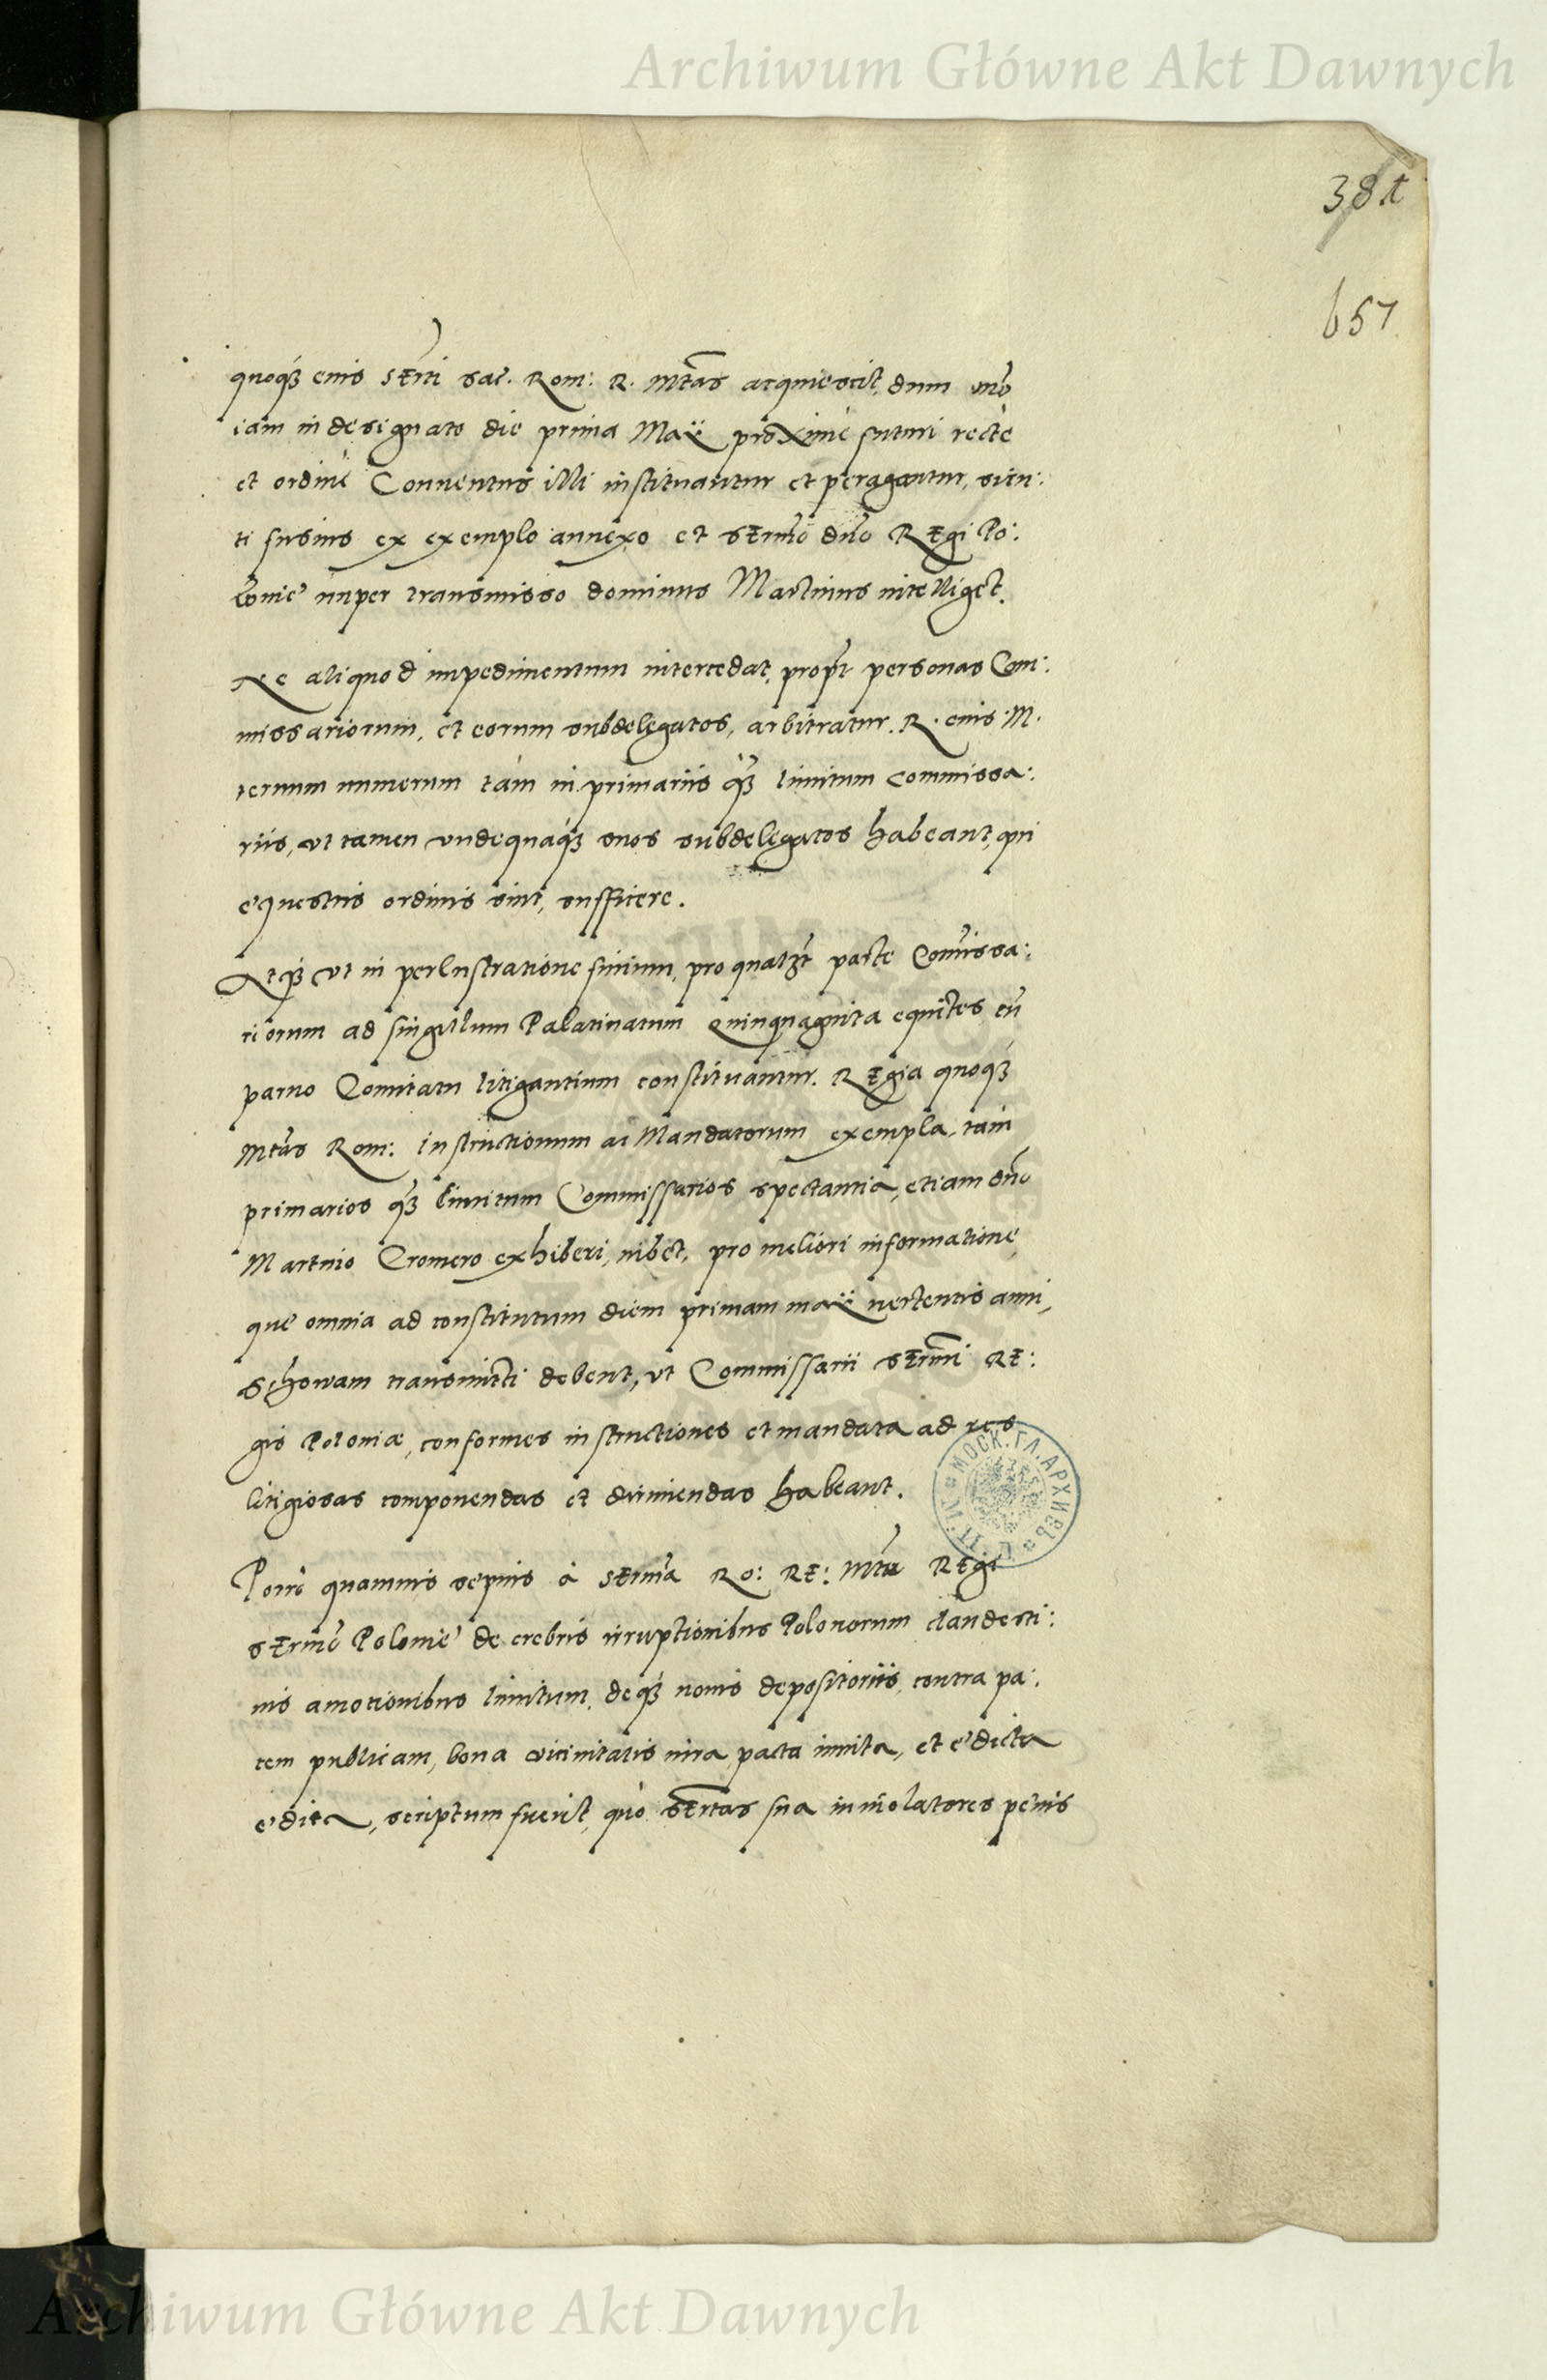 Archiwum Główne Akt Dawnych
381
657
quoq3 eius Sẽrti sac. Rom: R. Mtas acquiescit, dum mõ
iam in designato die prima Maÿ proximè futuri rectè
et ordine Conuentus illi instituantur et peragantur, sicu:
ti fusius ex exemplo annexo et Serᵐᵒ dño Regi Po:
lonie nuper transmisso dominus Martinus intelliget.
Ne aliquod impedimentum intercedat, propt personas Com:
missariorum, et eorum subdelegatos, arbitratur R. eius M.
ternum numerum tàm in primariis q̃3 limitum commissa:
riis, vt tamen vndequaq3 suos subdelegatos habeant, qui
equestris ordinis sint, sufficere.
Atq3 vt in perlustratione finium, pro qualt parte Comissa:
riorum ad singulum Palatinatum Quinquaginta equites, cũ
paruo Comitatu litigantium constituantur. Regia quoq3
Mtas Rom: instructionum ac Mandatorum exempla, tam
primarios q̃3 limitum Commissarios spectantia, etiam dño
Martino Cromero exhiberi iubet, pro meliori informatione,
que omnia ad constitutum diem primam maÿ vertentis anni,
Schowam transmitti debent, vt Commissarii Sermi Re:
gis Poloniæ, conformes instructiones et mandata ad res
litigiosas componendas et dirimendas habeant.
Porrò quamuis sepius à Serma Ro: Re: Mtẽ Regi
Sermõ Polonie de crebris irruptionibus Polonorum clandesti:
nis amotionibus limitum, deq3 nouis depositoriis, contra pa:
cem publicam, bona vicinitatis iura, pacta inita, et edicta
edita, scriptum fuerit, quò Sẽrtas sua in violatores penis
МОСК. ГЛ. АРХИВЪ
Archiwum Główne Akt Dawnych